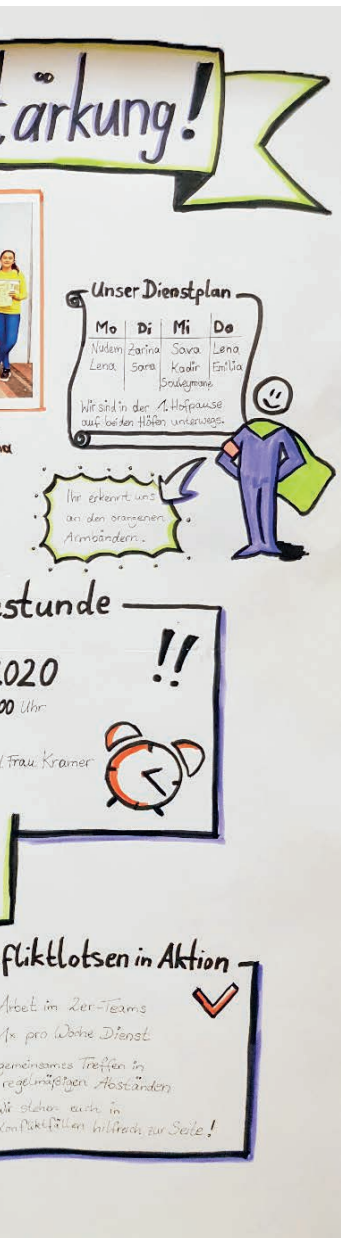 tärkung!
Unser Dienstplan
Mo Di Mi Do
Nudem Zarina Sava Lena
Lena Sara Kadir Emilia
Souleymane
Wir sind in der 1. Hofpause
auf beiden Höfen unterwegs.
Ihr erkennt uns
an den orangenen
Armbändern.
stunde
2020
00 Uhr
!!
Frau Kramer
fliktlotsen in Aktion
Arbeit im 2er-Teams
1x pro Woche Dienst
gemeinsames Treffen in
regelmäßigen Abständen
Wir stehen euch in
Konfliktfällen hilfreich zur Seite!